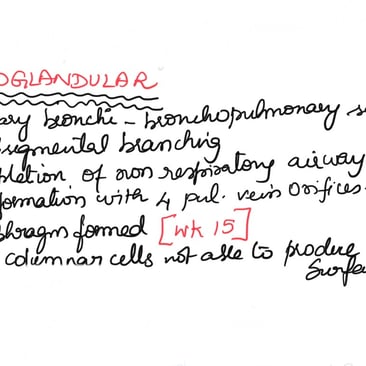 OGLANDULAR
ary bronchi - bronchopulmonary s
segmental branching
pletion of non respiratory airway
formation with 4 pul. vein orifices
phragm formed [wk 15]
columnar cells not able to produce
Surfa